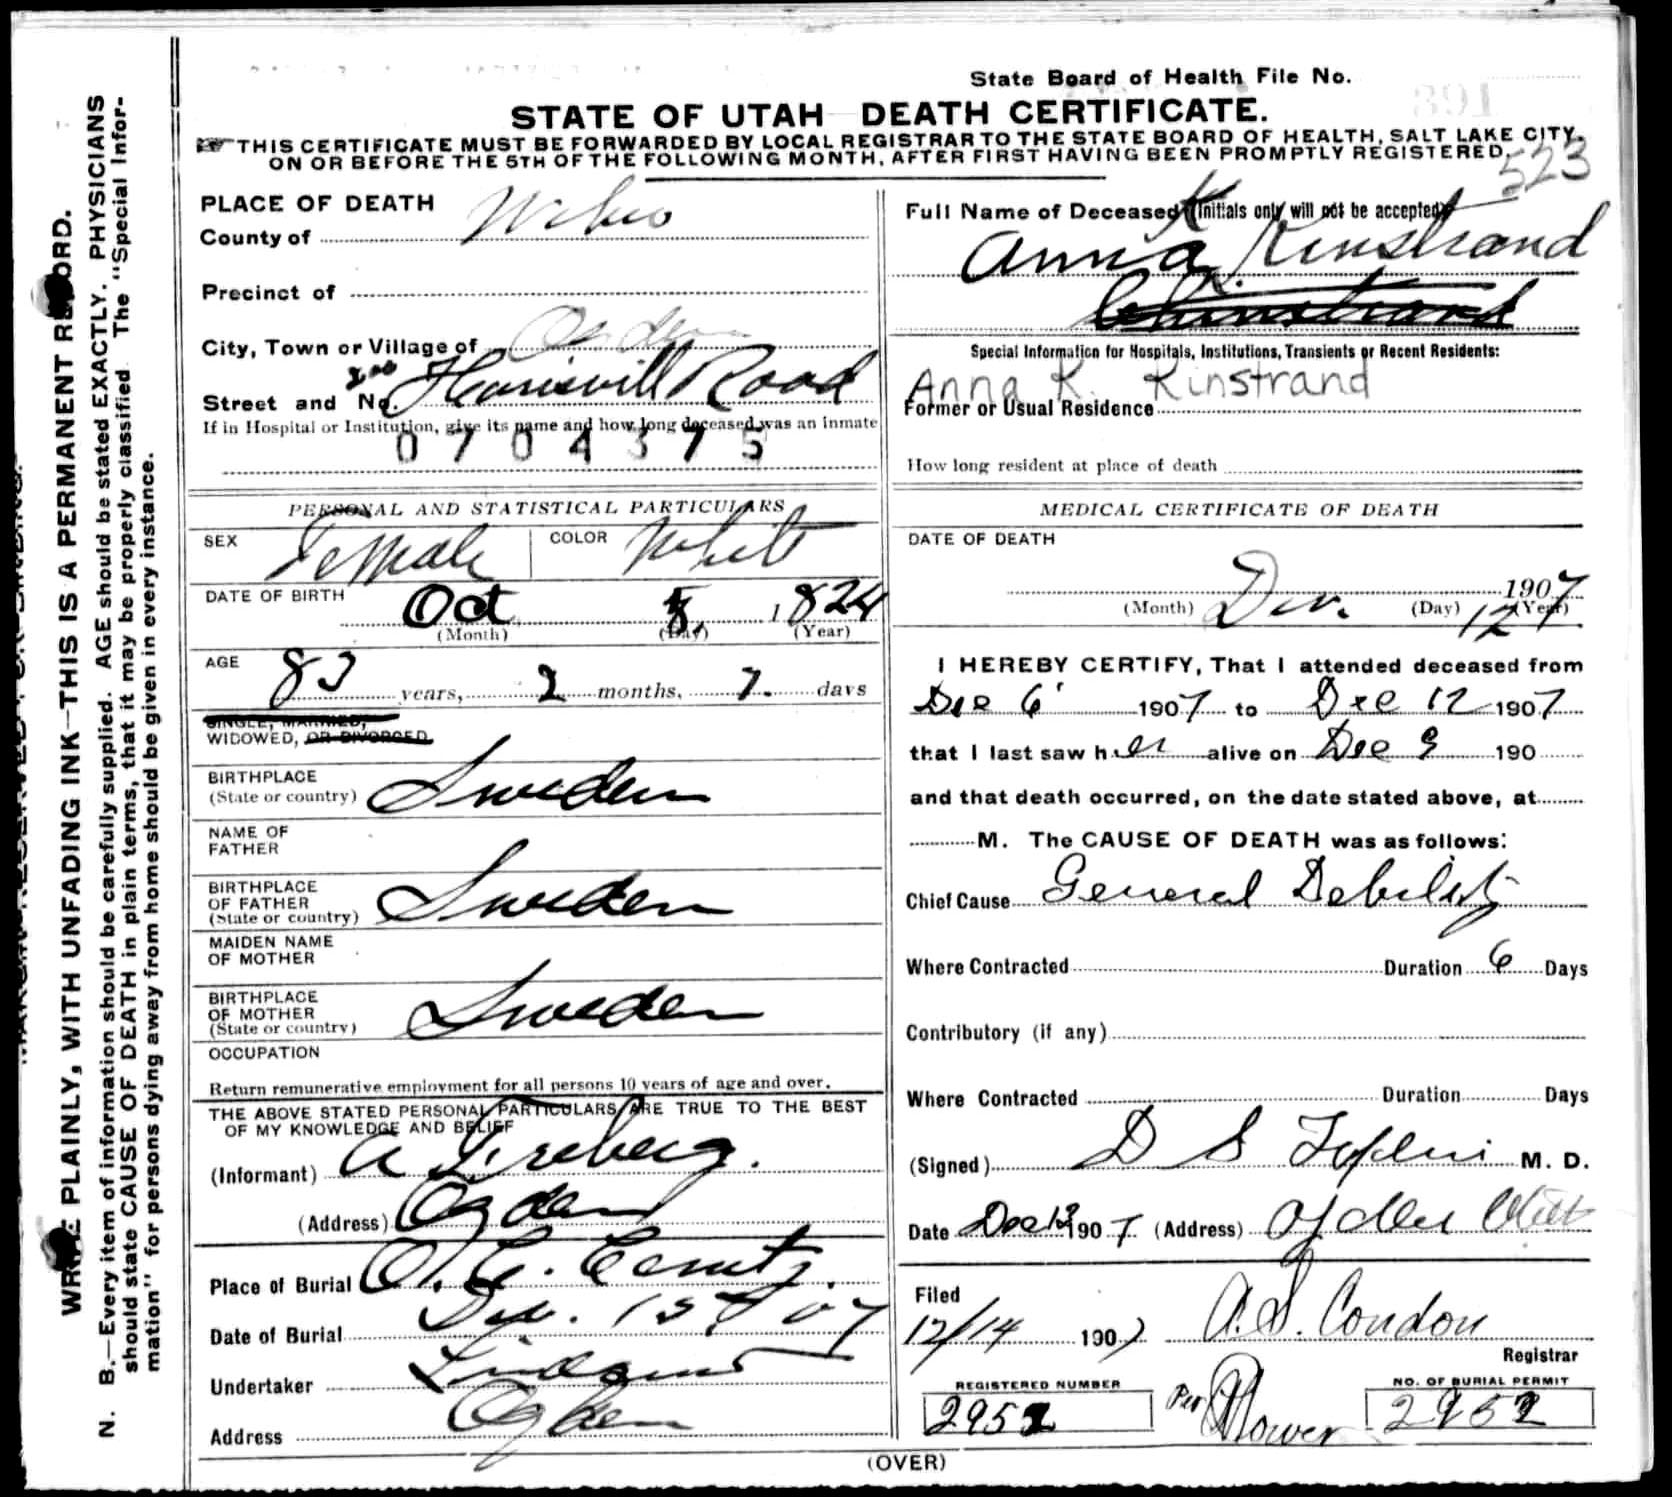 State Board of Health File No.
STATE OF UTAH DEATH CERTIFICATE.
THIS CERTIFICATE MUST BE FORWARDED BY LOCAL REGISTRAR TO THE STATE BOARD OF HEALTH, SALT LAKE CITY,
ON OR BEFORE THE 5TH OF THE FOLLOWING MONTH, AFTER FIRST HAVING BEEN PROMPTLY REGISTERED.
523
WRITE PLAINLY, WITH UNFADING INK—THIS IS A PERMANENT RECORD.
N. B.—Every item of information should be carefully supplied. AGE should be stated EXACTLY. PHYSICIANS
should state CAUSE OF DEATH in plain terms, that it may be properly classified. The "Special Infor-
mation" for persons dying away from home should be given in every instance.
PLACE OF DEATH
County of
Precinct of
City, Town or Village of Ogden
Street and No. 200 Harrisvill Road
If in Hospital or Institution, give its name and how long deceased was an inmate
0704375
PERSONAL AND STATISTICAL PARTICULARS
SEX Female COLOR White
DATE OF BIRTH Oct 5, 1824
(Month) (Day) (Year)
AGE 83 years, 2 months, 7. days
SINGLE, MARRIED,
WIDOWED, OR DIVORCED
BIRTHPLACE
(State or country) Sweden
NAME OF
FATHER
BIRTHPLACE
OF FATHER
(State or country) Sweden
MAIDEN NAME
OF MOTHER
BIRTHPLACE
OF MOTHER
(State or country) Sweden
OCCUPATION
Return remunerative employment for all persons 10 years of age and over.
THE ABOVE STATED PERSONAL PARTICULARS ARE TRUE TO THE BEST
OF MY KNOWLEDGE AND BELIEF
(Informant) A
(Address) Ogden
Place of Burial O. C. Cemty.
Date of Burial Dec. 15 07
Undertaker
Address Ogden
Full Name of Deceased (Initials only will not be accepted)
Anna K. Kinstrand
Special Information for Hospitals, Institutions, Transients or Recent Residents:
Anna K. Kinstrand
Former or Usual Residence
How long resident at place of death
MEDICAL CERTIFICATE OF DEATH
DATE OF DEATH
1907
(Month) Dec. (Day) 12 (Year)
I HEREBY CERTIFY, That I attended deceased from
Dec 6 1907 to Dec 12 1907
that I last saw her alive on Dec 9 190
and that death occurred, on the date stated above, at
M. The CAUSE OF DEATH was as follows:
Chief Cause General Debility
Where Contracted Duration 6 Days
Contributory (if any)
Where Contracted Duration Days
(Signed) D S M. D.
Date Dec 13 1907 (Address) Ogden Utah
Filed
12/14 1907 A. S. Condon
Registrar
REGISTERED NUMBER
2952
Per
NO. OF BURIAL PERMIT
2952
(OVER)